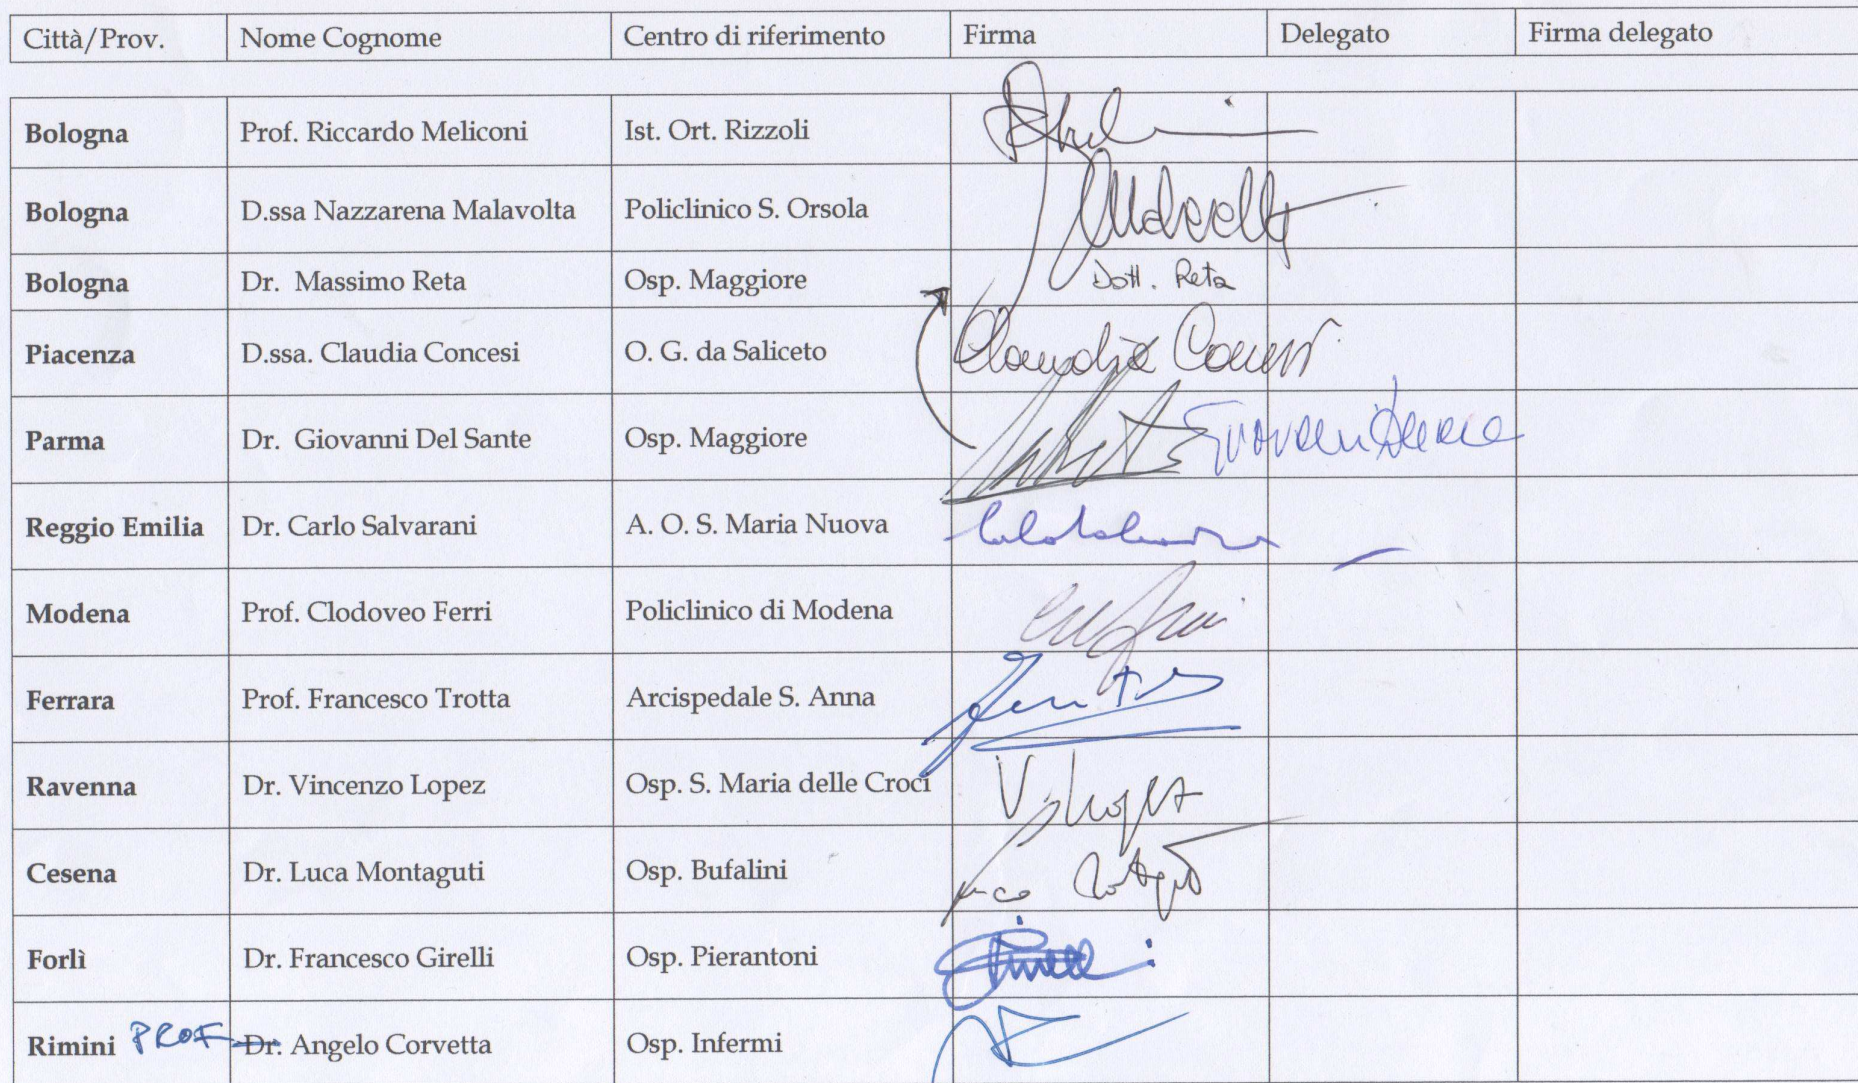 Città/Prov. Nome Cognome Centro di riferimento Firma Delegato Firma delegato
Bologna Prof. Riccardo Meliconi Ist. Ort. Rizzoli
Bologna D.ssa Nazzarena Malavolta Policlinico S. Orsola
Bologna Dr. Massimo Reta Osp. Maggiore Dott. Reta
Piacenza D.ssa. Claudia Concesi O. G. da Saliceto Claudia
Parma Dr. Giovanni Del Sante Osp. Maggiore
Reggio Emilia Dr. Carlo Salvarani A. O. S. Maria Nuova
Modena Prof. Clodoveo Ferri Policlinico di Modena
Ferrara Prof. Francesco Trotta Arcispedale S. Anna
Ravenna Dr. Vincenzo Lopez Osp. S. Maria delle Croci
Cesena Dr. Luca Montaguti Osp. Bufalini
Forlì Dr. Francesco Girelli Osp. Pierantoni
Rimini PROF Dr. Angelo Corvetta Osp. Infermi